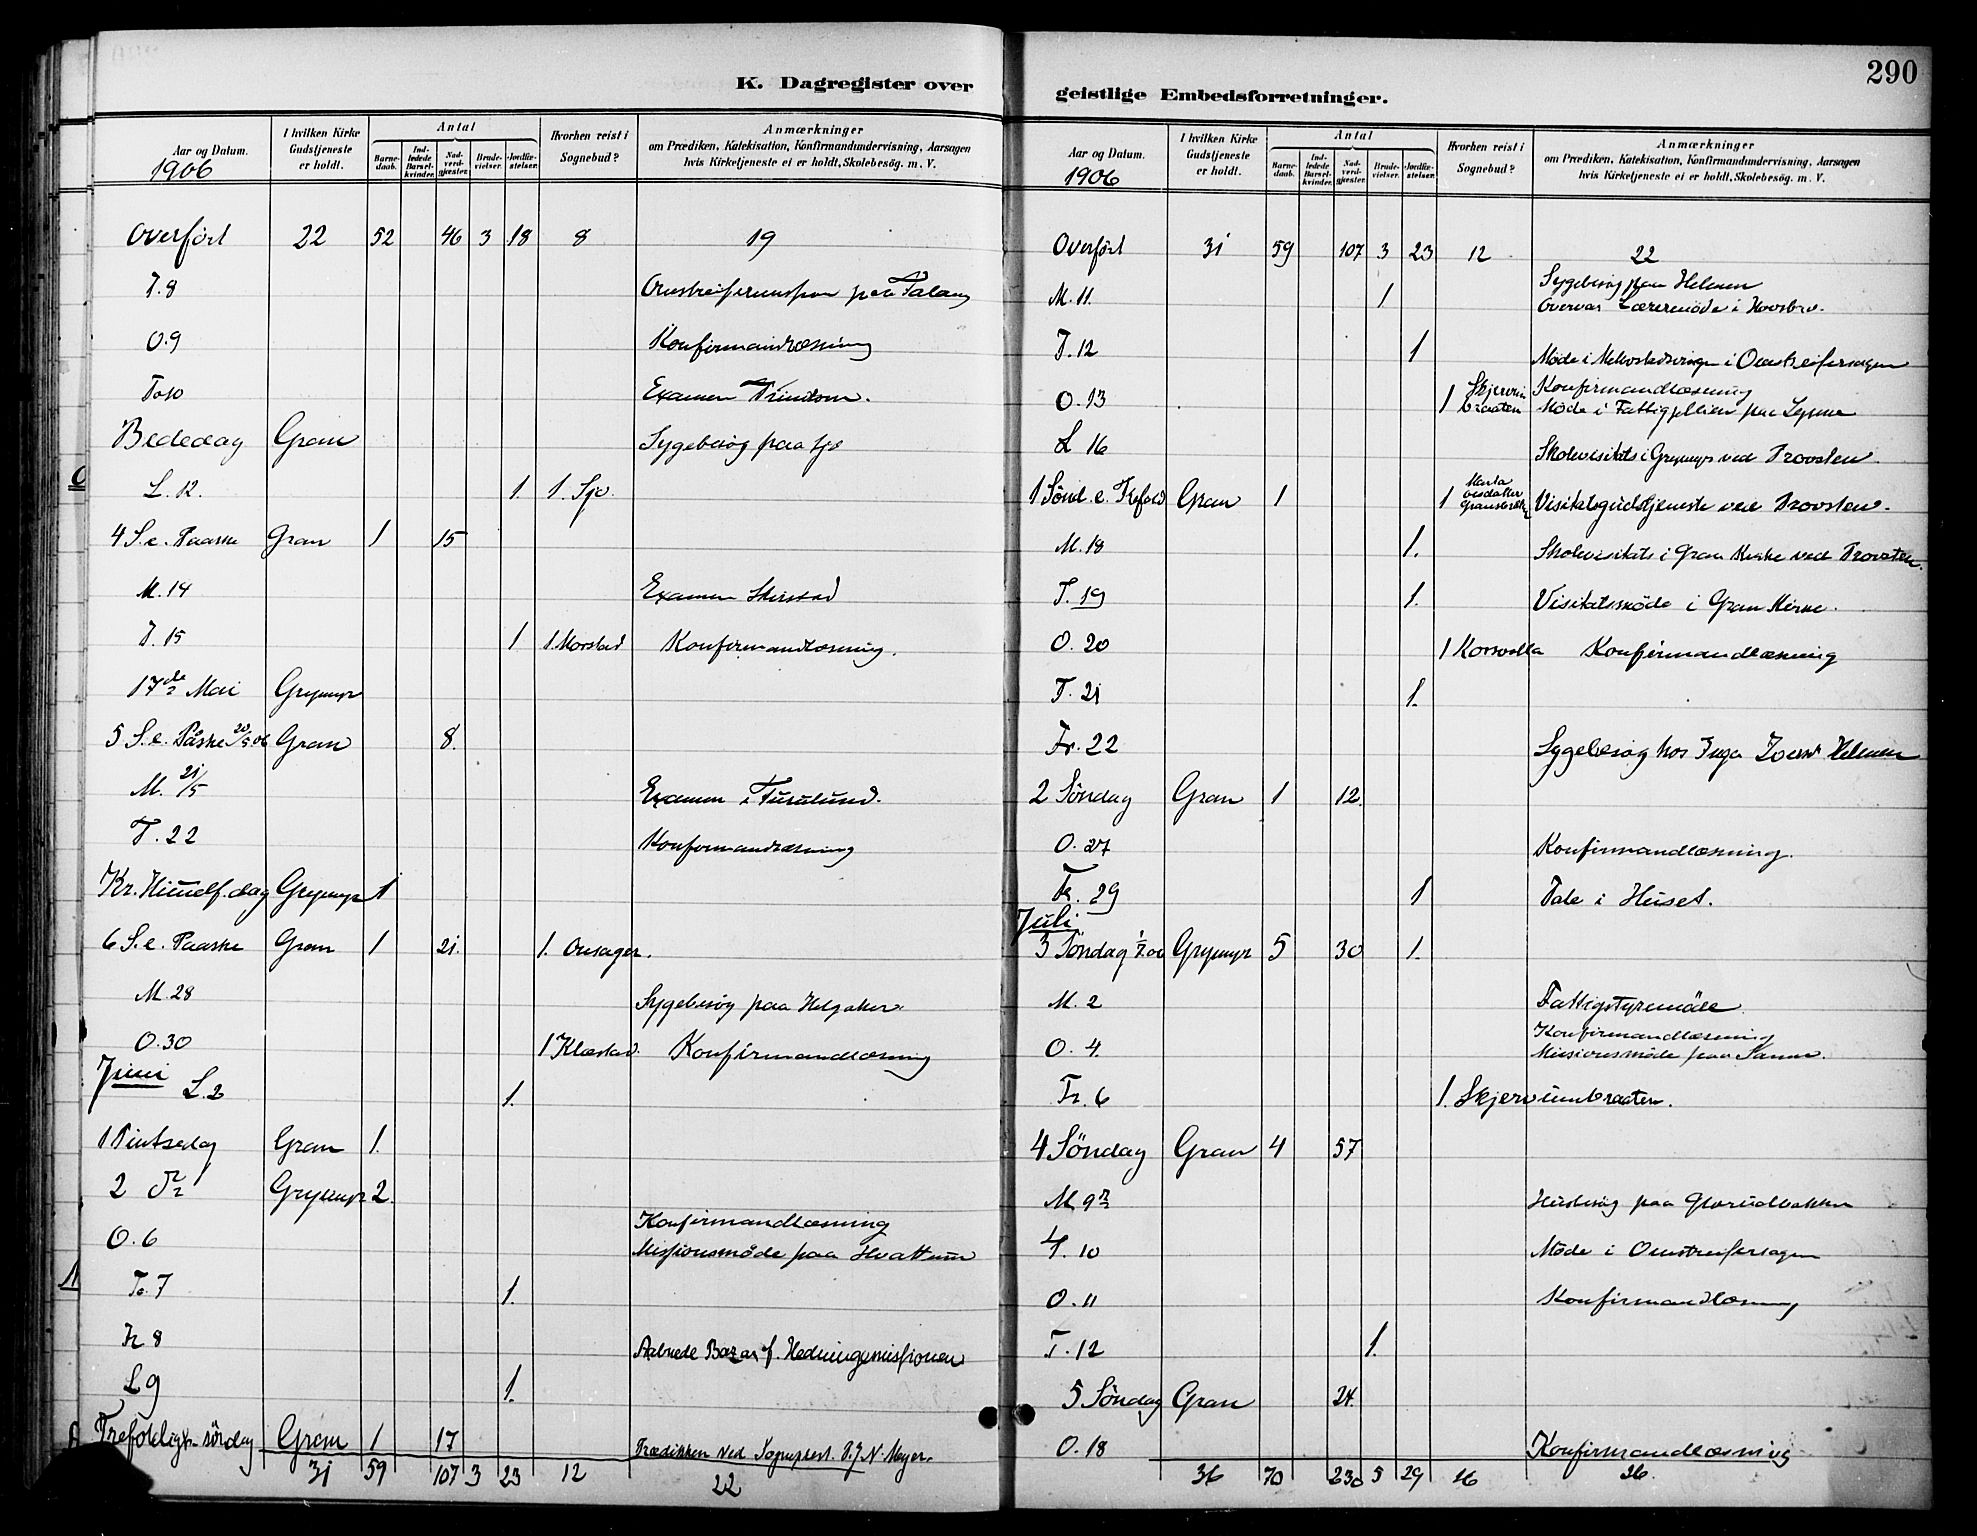 K. Dagregister over
Aar og Datum.
1906
I hvilken Kirke Gudstjeneste er holdt.
Antal
Barne-daab.
Ind-ledede Barsel-kvinder.
Nad-verd-gjæster.
Brude-vielser.
Jordfæ-stelser.
Hvorhen reist i Sognebud?
Anmærkninger
om Prædiken, Katekisation, Konfirmandundervisning, Aarsagen
hvis Kirketjeneste ei er holdt, Skolebesøg. m. V.
Overført 22 52 46 3 18 8 19
T. 8
O. 9 Konfirmandlæsning
To 10 Examen
Bededag Gran Sygebesøg paa
L. 12. 1. 1.
4 S. e. Paaske Gran 1 15
M. 14 Examen
T. 15 1 1 Morstad Konfirmandlæsning.
17de Mai Grymyr
5 S. e. Påske 20/5 06 Gran 8.
M. 21/5 Examen i
T. 22 Konfirmandlæsning
Kr. Himelf. dag Grymyr 1
6 S. e. Paaske Gran 1 21. 1.
M. 28 Sygebesøg paa Helgaker
O. 30 1 Klæstad. Konfirmandlæsning
Juni L. 2 1.
1 Pintsedag Gran 1.
2 Do Grymyr 2.
O. 6 Konfirmandlæsning
Missionsmøde paa Hvattum
To. 7 1.
Fr 8 Aabnede Bazar f. Hedningemissionen
L 9 1.
Trefoldigh. søndag Gran 1 17 Prædiken ved Sognepræst. Meyer.
31 59 107 3 23 12 22
geistlige Embedsforretninger.
290
Aar og Datum.
1906
I hvilken Kirke Gudstjeneste er holdt.
Antal
Barne-daab.
Ind-ledede Barsel-kvinder.
Nad-verd-gjæster.
Brude-vielser.
Jordfæ-stelser.
Hvorhen reist i Sognebud?
Anmærkninger
om Prædiken, Katekisation, Konfirmandundervisning, Aarsagen
hvis Kirketjeneste ei er holdt, Skolebesøg. m. V.
Overført 31 59 107 3 23 12 22
M. 11. 1 Sygebesøg paa Helmen
Overvar Lærermøde i
T. 12 1 Møde i i Omstreifersagen
O. 13 1 Skjervumbraaten Konfirmandlæsning
Møde i paa
L 16 Skolevisitats i Grymyr ved Provsten
1 Sønd. e. Trefold Gran 1 1 Visitatsgudstjeneste ved Provsten.
M. 18 1. Skolevisitats i Gran Kirke ved Provsten.
T. 19 1. Visitatsmøde i Gran Kirke.
O. 20 1 Konfirmandlæsning
T. 21 1.
Fr. 22 Sygebesøg hos Inga Helmen
2 Søndag Gran 1 12.
O. 27 Konfirmandlæsning.
Fr. 29 1 Tale i Huset.
Juli
3 Søndag 1/7 06 Grymyr 5 30 1.
M. 2 Fattigstyremøde
O. 4. Konfirmandlæsning
Missionsmøde paa Sanne.
Fr. 6 1. Skjervumbraaten.
4 Søndag Gran 4 57
M 9 Husbesøg paa Glorudbakken
T. 10 Møde i Omstreifersagen
O. 11 Konfirmandlæsning
T. 12 1.
5 Søndag Gran 24.
O. 18 Konfirmandlæsning
36 70 230 5 29 16 26.